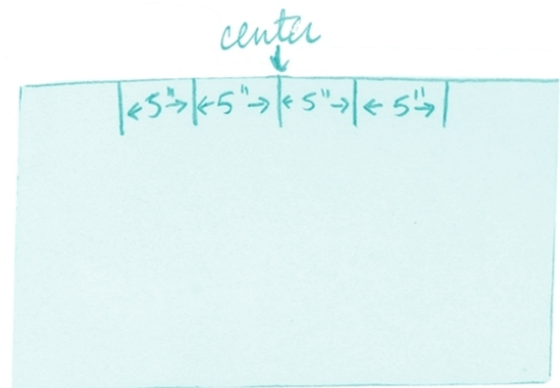 center
5" 5" 5" 5"